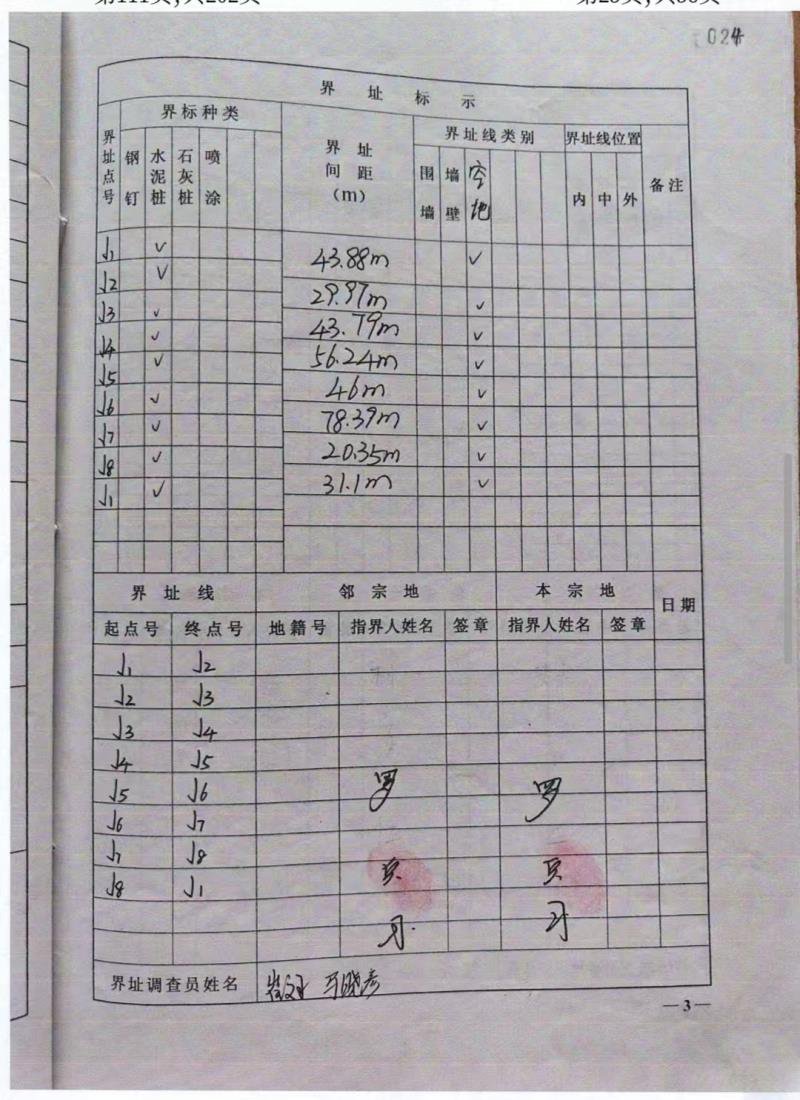 第111页,共202页 第25页,共56页
024
界址标示
界址点号 界标种类 界址间距(m) 界址线类别 界址线位置 备注
钢钉 水泥桩 石灰桩 喷涂 围墙 墙壁 空地 内 中 外
J1 ✓
43.88m ✓
J2 ✓
29.97m ✓
J3 ✓
43.79m ✓
J4 ✓
56.24m ✓
J5 ✓
46m ✓
J6 ✓
78.39m ✓
J7 ✓
20.35m ✓
J8 ✓
31.1m ✓
J1 ✓
界址线 邻宗地 本宗地 日期
起点号 终点号 地籍号 指界人姓名 签章 指界人姓名 签章
J1 J2
J2 J3
J3 J4
J4 J5
J5 J6 罗 罗
J6 J7
J7 J8
J8 J1
界址调查员姓名 马晓彦
—3—